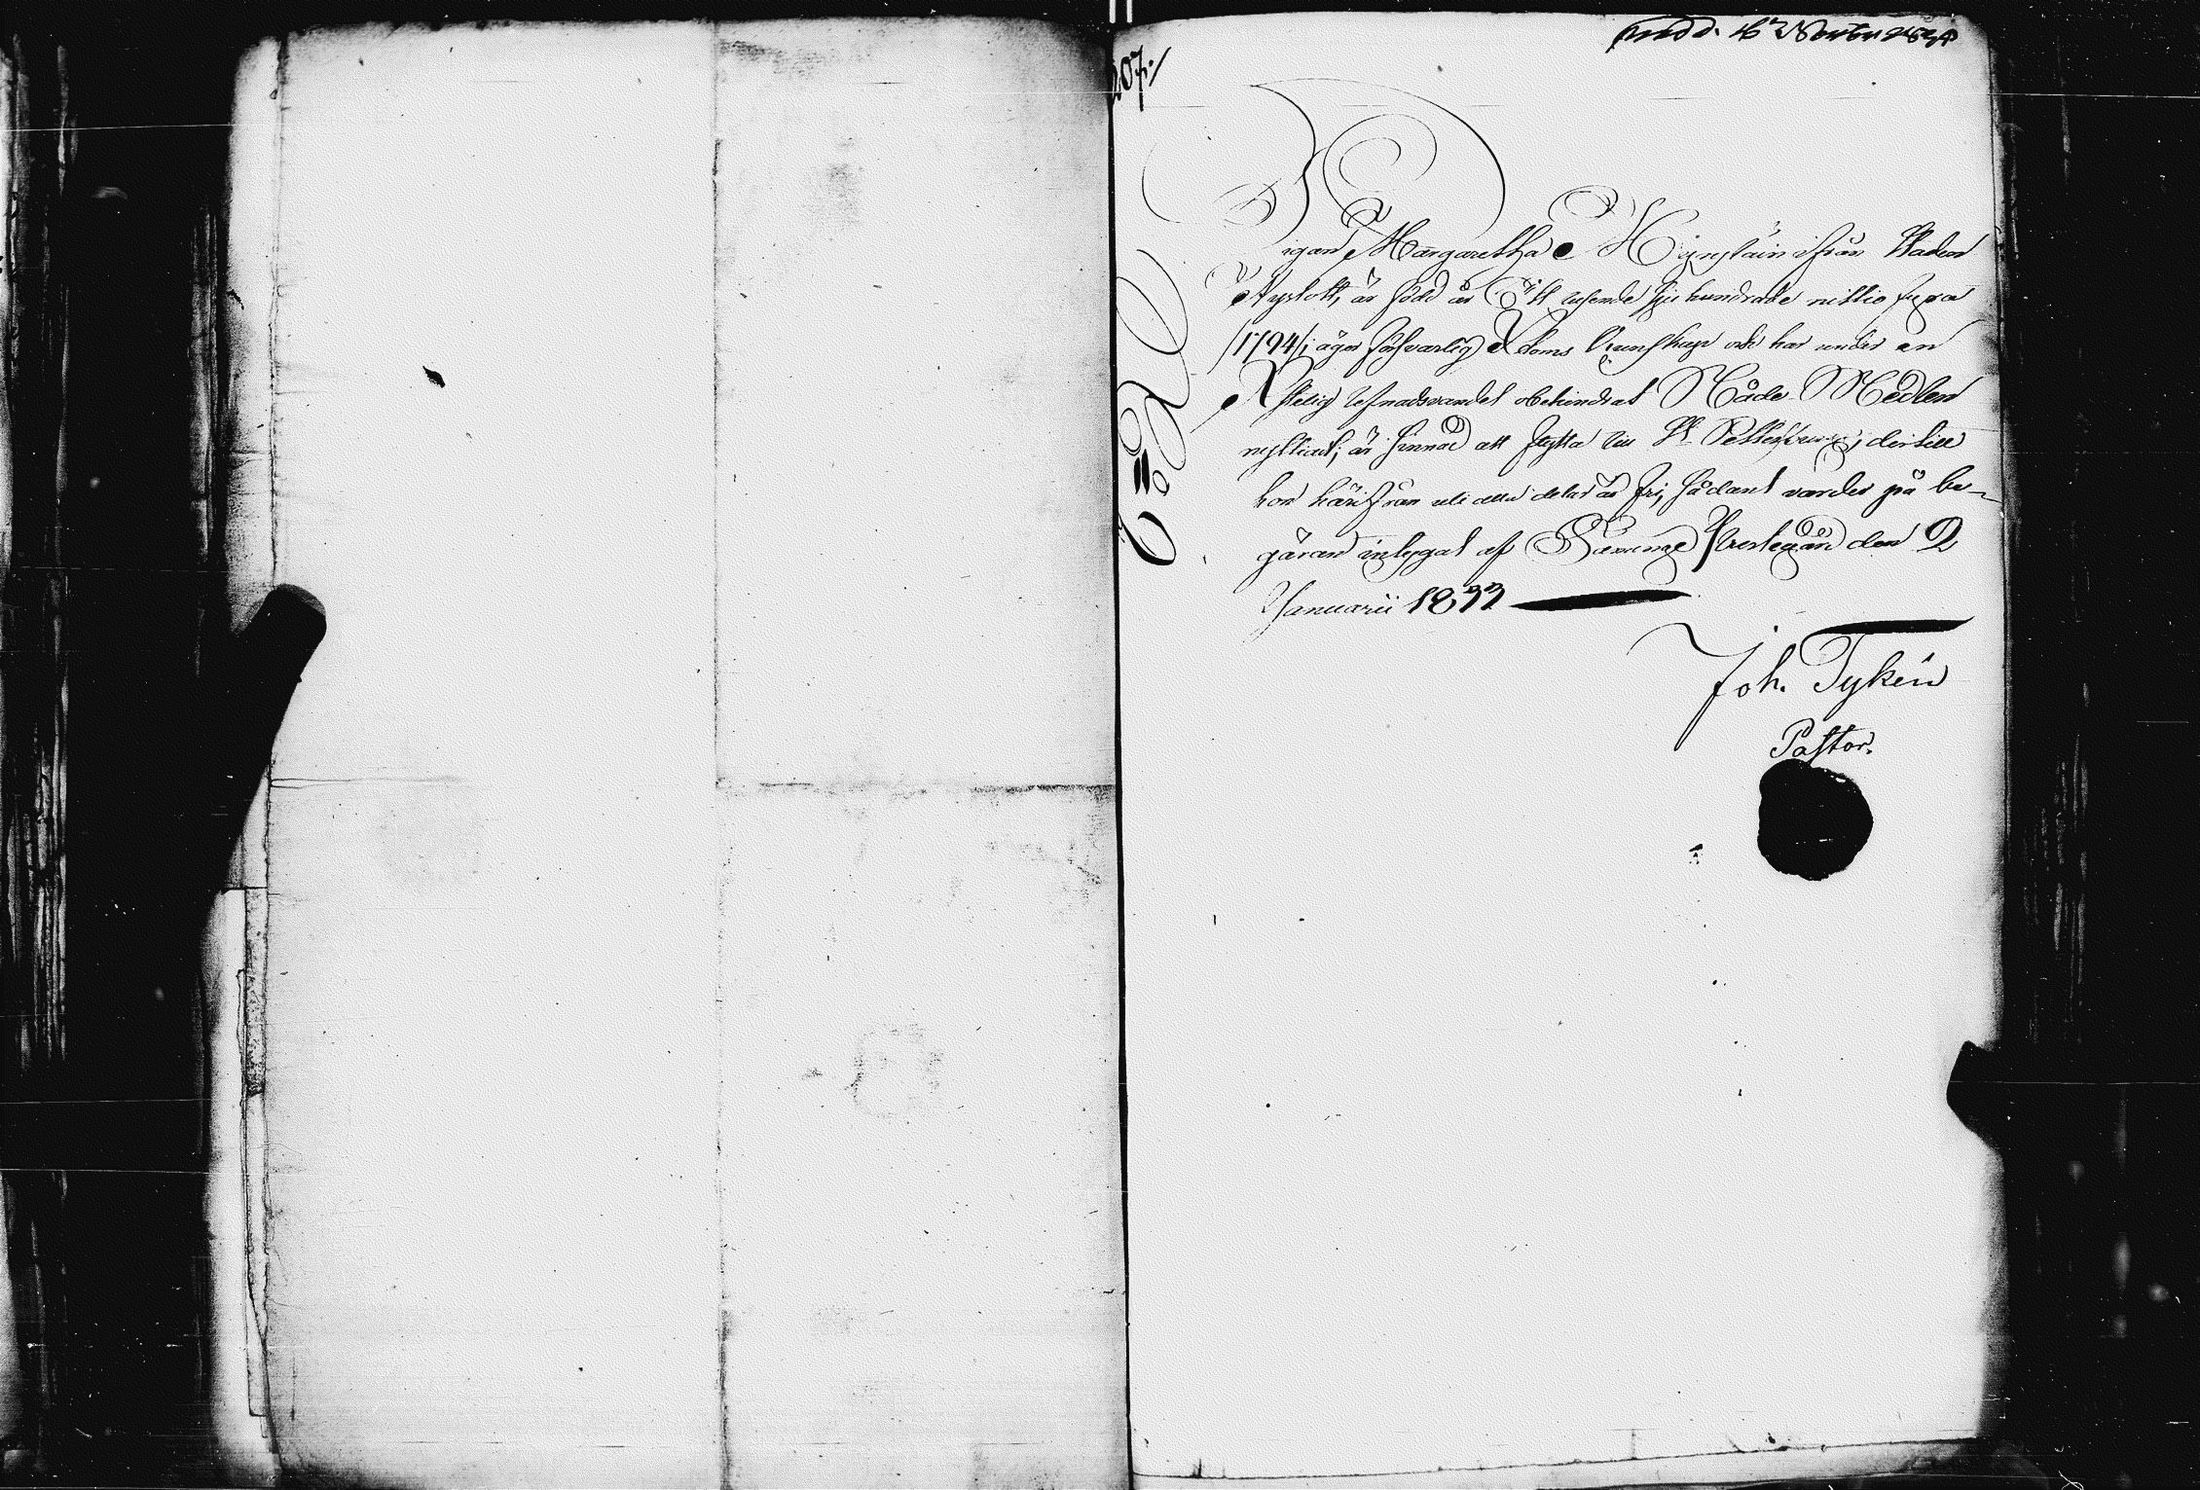 207./
Pigan Margaretha Högnstain ifrån Staden
Nyslott, är född år Ett tusende sju hundrade nittio fyra
/1794/; äger försvarlig Xstendoms Kunskap och har under en
Xstelig lefnadsvandel obehindrat Nåde Medlen
nyttjat; är sinnad att flytta till St Pettersburg, dertill
hon härifrån uti alla delar är fri; sådant varder på be-
gäran intygat af Prestegård den 2
Januarii 1833
Joh. Tykén
Pastor.